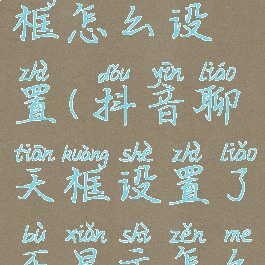 框怎么设
zhì dǒu yīn liáo
置(抖音聊
tiān kuàng shè zhì liǎo
天框设置了
bù xiǎn shì zěn me
不显示怎么